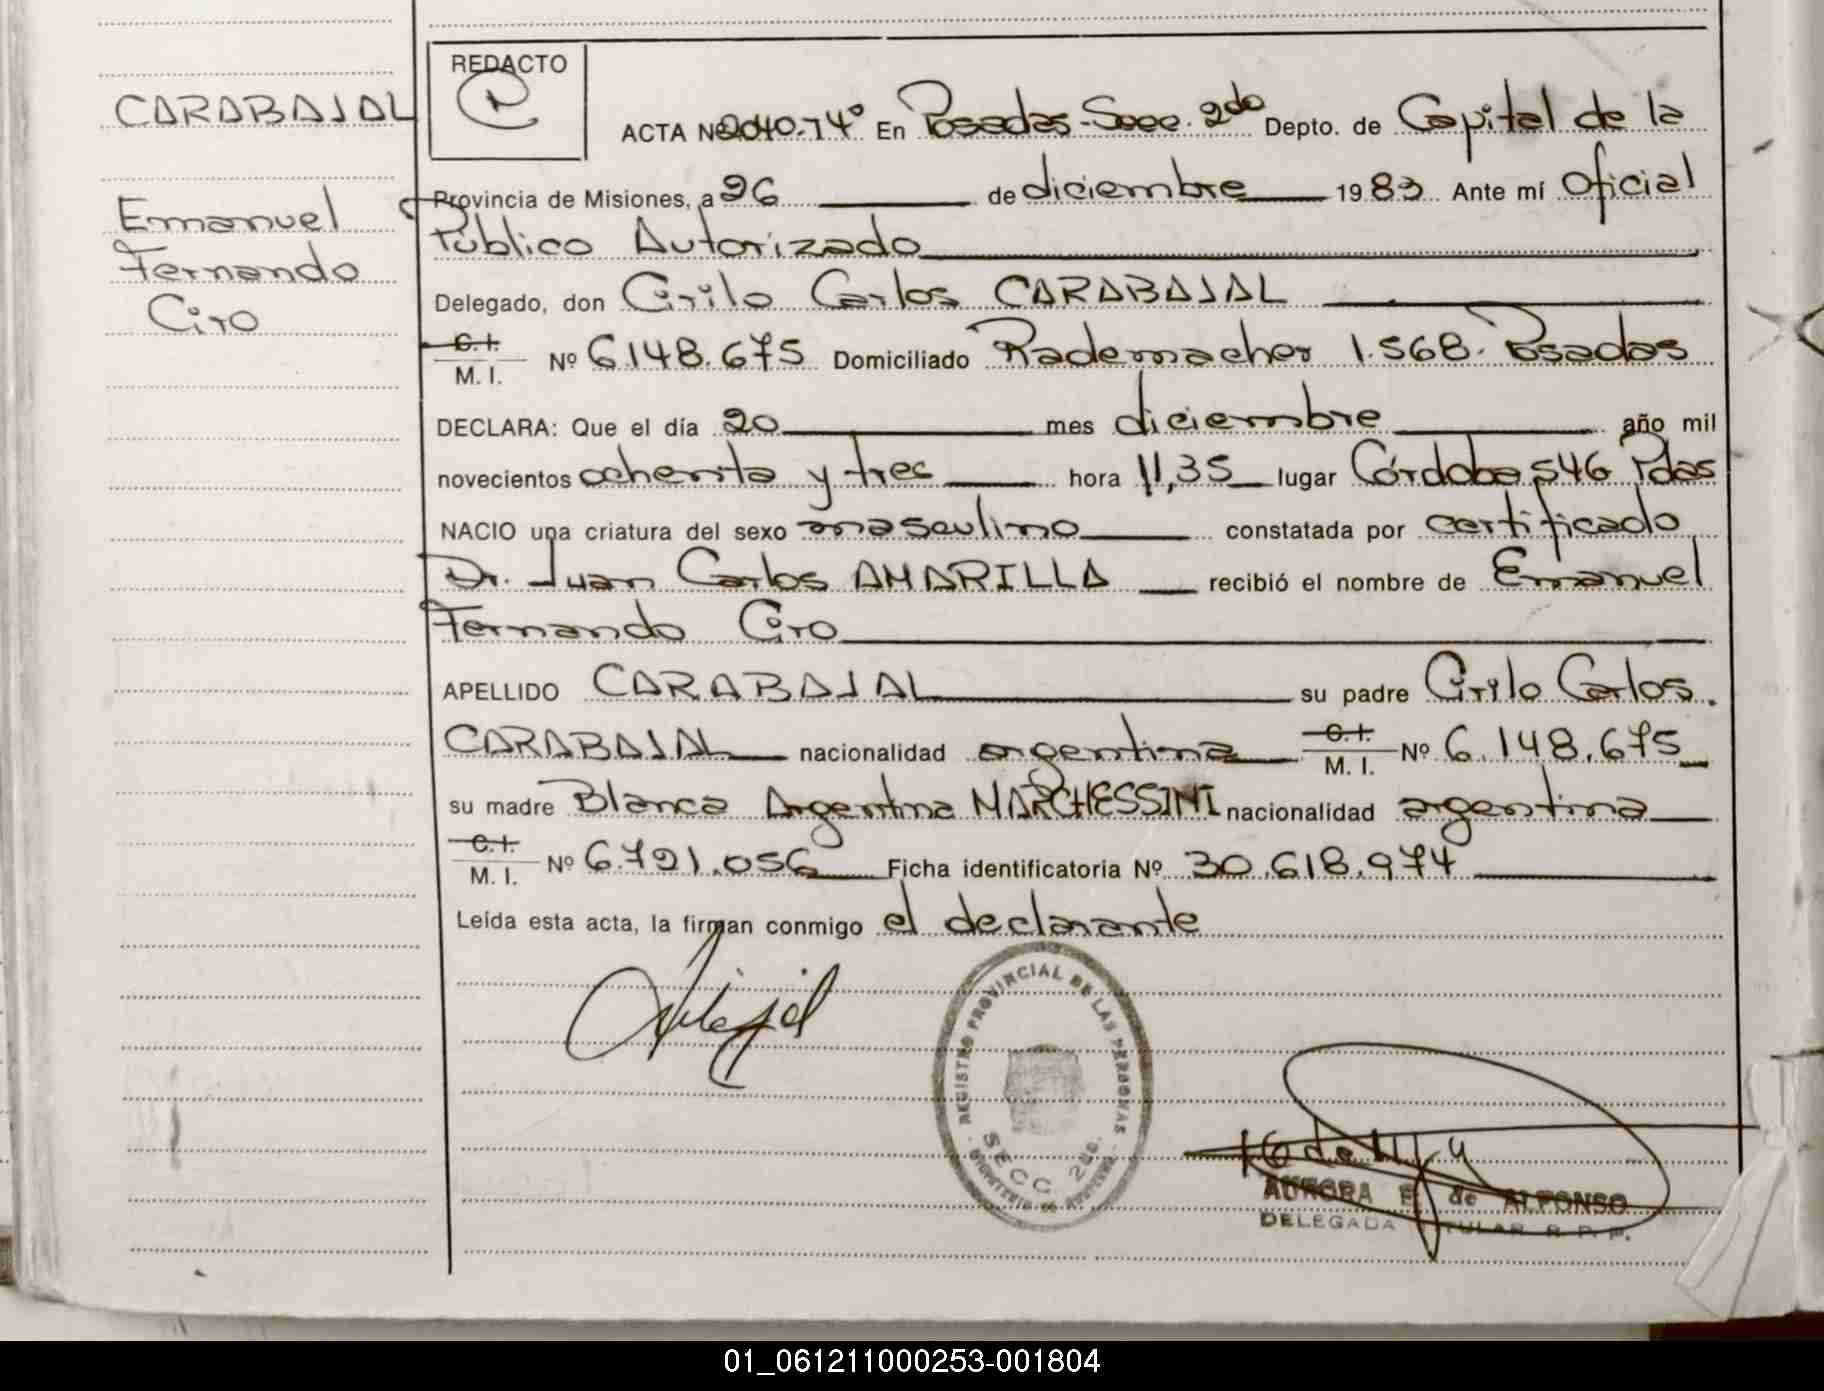 REDACTO
CARABAJAL
ACTA Nº 2040-T4º En Posadas-Secc. 2do Depto. de Capital de la
Provincia de Misiones, a 26 de diciembre 1983 Ante mí Oficial
Emanuel
Público Autorizado
Fernando
Delegado, don Cirilo Carlos CARABAJAL
Ciro
C.I. M.I. Nº 6.148.675 Domiciliado Rademacher 1.568. Posadas
DECLARA: Que el día 20 mes diciembre año mil
novecientos ochenta y tres hora 11,35 lugar Córdoba 546 Pdas
NACIO una criatura del sexo masculino constatada por certificado
Dr. Juan Carlos AMARILLA recibió el nombre de Emanuel
Fernando Ciro
APELLIDO CARABAJAL su padre Cirilo Carlos.
CARABAJAL nacionalidad argentina C.I. M.I. Nº 6.148.675
su madre Blanca Argentina MARCHESSINI nacionalidad argentina
C.I. M.I. Nº 6.721.056 Ficha identificatoria Nº 30.618.974
Leída esta acta, la firman conmigo el declarante
REGISTRO PROVINCIAL DE LAS PERSONAS
SECC 2da.
AURORA E. de ALFONSO
DELEGADA TITULAR R. P. P.
01_061211000253-001804